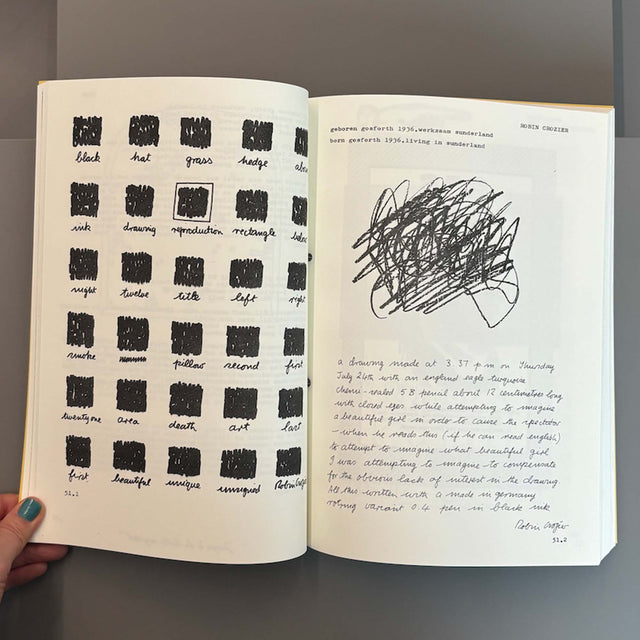 black hat grass hedge
ink drawing reproduction rectangle
night twelve title left right
smoke pillow second first
twentyone area death art last
first beautiful unique unsigned Robin Crozier
51.1
geboren gosforth 1936.werkzaam sunderland
ROBIN CROZIER
born gosforth 1936.living in sunderland
a drawing made at 3.37 p m on Thursday
July 24th with an england eagle turquoise
chemi-sealed 5B pencil about 12 centimetres long
with closed eyes while attempting to imagine
a beautiful girl in order to cause the spectator
- when he reads this (if he can read english)
to attempt to imagine what beautiful girl
I was attempting to imagine to compensate
for the obvious lack of interest in the drawing.
All this written with a made in germany
rotring variant 0.4 pen in black ink
Robin Crozier
51.2